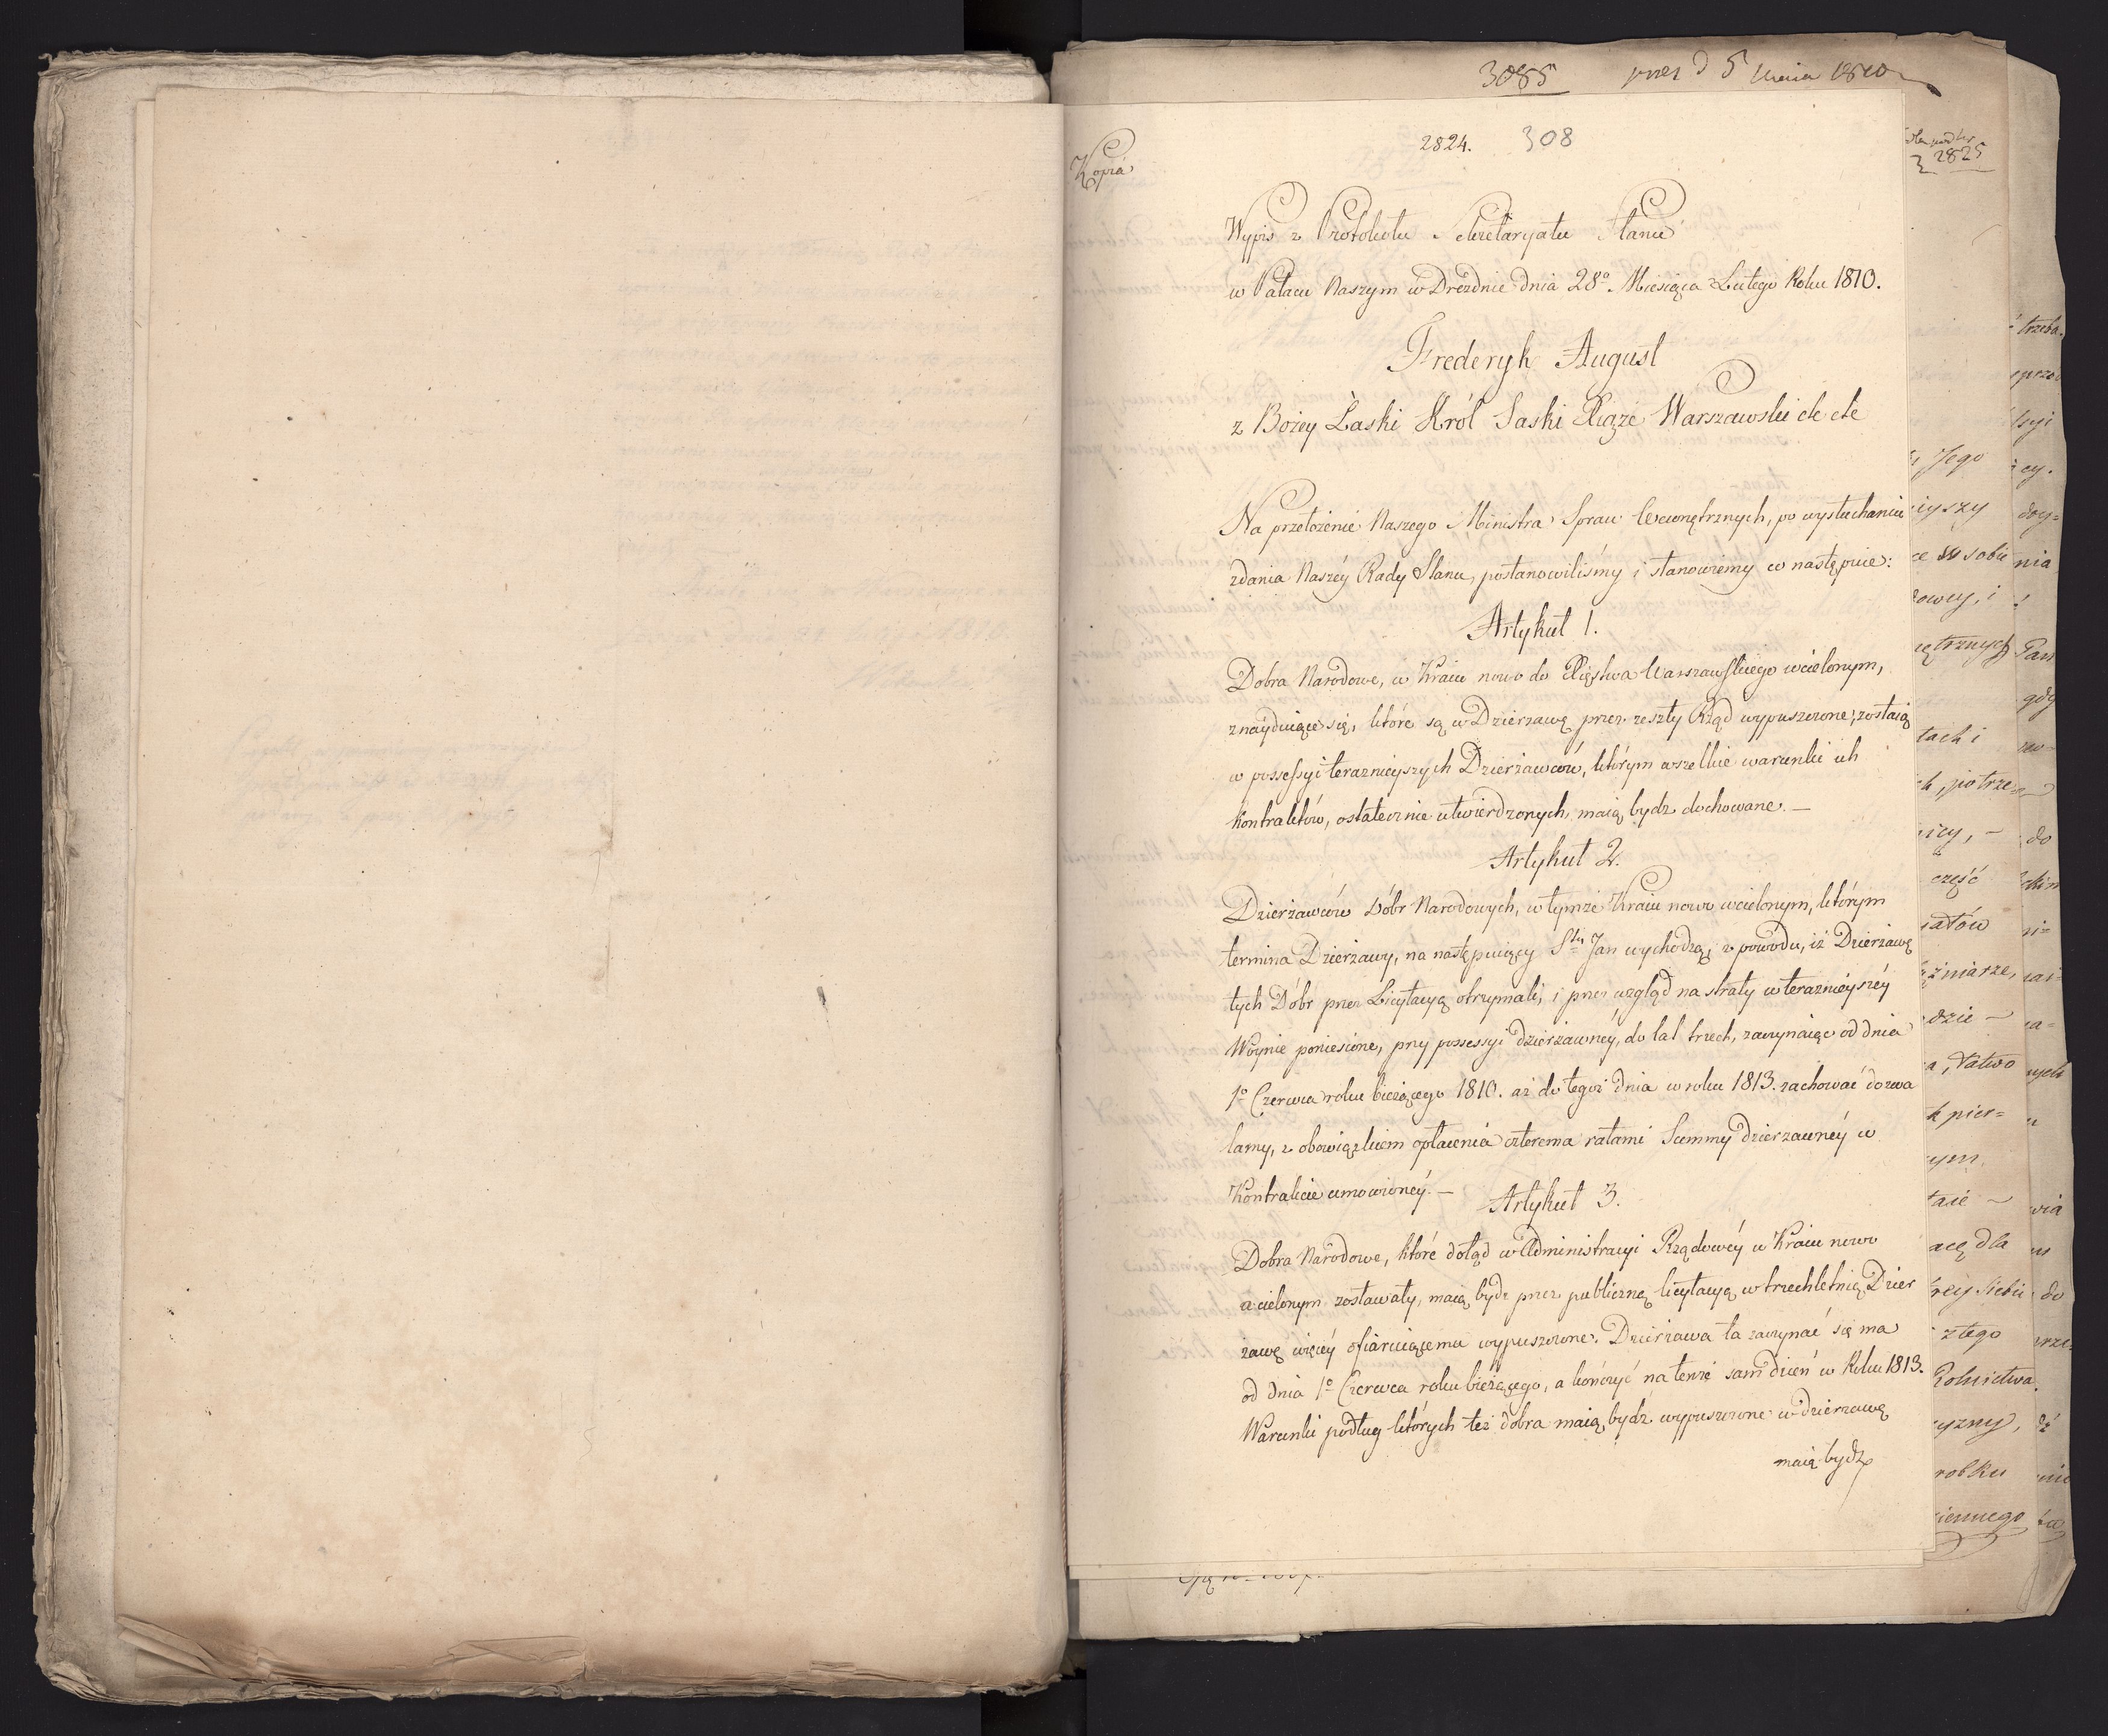 3085 prez d 5 Maia 1810
2824. 308
Kopia
2825
Wypis z Protokołu Sekretaryatu Stanu
w Pałacu Naszym w Dreźdnie dnia 28º. Miesiąca Lutego Roku 1810.
Frederyk August
z Bożey Łaski Król Saski Xiąże Warszawski etc etc
Na przełożenie Naszego Ministra Spraw Wewnętrznych, po wysłuchaniu
zdania Naszéy Rady Stanu, postanowiliśmy i stanowiemy co następuie:
Artykuł 1.
Dobra Narodowe, w Kraiu nowo do Xięstwa Warszawskiego wcielonym,
znayduiące się, które są w Dzierżawę przez zeszły Rząd wypuszczone, zostaią
w possessyi teraznieyszych Dzierżawców, którym wszelkie warunki ich
Kontraktów, ostatecznie utwierdzonych, maią bydz dochowane. —
Artykuł 2.
Dzierżawców Dóbr Narodowych, w tymże Kraiu nowo wcielonym, którym
termina Dzierżawy, na następuiący Sty Jan wychodzą, z powodu, iż Dzierżawę
tych Dóbr przez Licytacyą otrzymali, i przez wzgląd na straty w teraznieyszéy
Woynie poniesione, przy possessyi dzierżawnéy, do lat trzech, zaczynaiąc od dnia
1º Czerwca roku bieżącego 1810. aż do tegoż dnia w roku 1813. zachować dozwa
lamy, z obowiązkiem opłacenia czterema ratami Summy dzierżawnéy w
Kontrakcie umowionéy. —
Artykuł 3.
Dobra Narodowe, które dotąd w Administracyi Rządowéy w Kraiu nowo
wcielonym zostawały, maią bydz przez publiczną licytacyą w trzechletnią Dzier
żawę więcéy ofiaruiącemu wypuszczone. Dzierżawa ta zaczynać się ma
od dnia 1º Czerwca roku bieżącego, a kończyć na tenże sam dzień w Roku 1813.
Warunki podług których też dobra maią bydź wypuszczone w dzierżawę
maią bydź